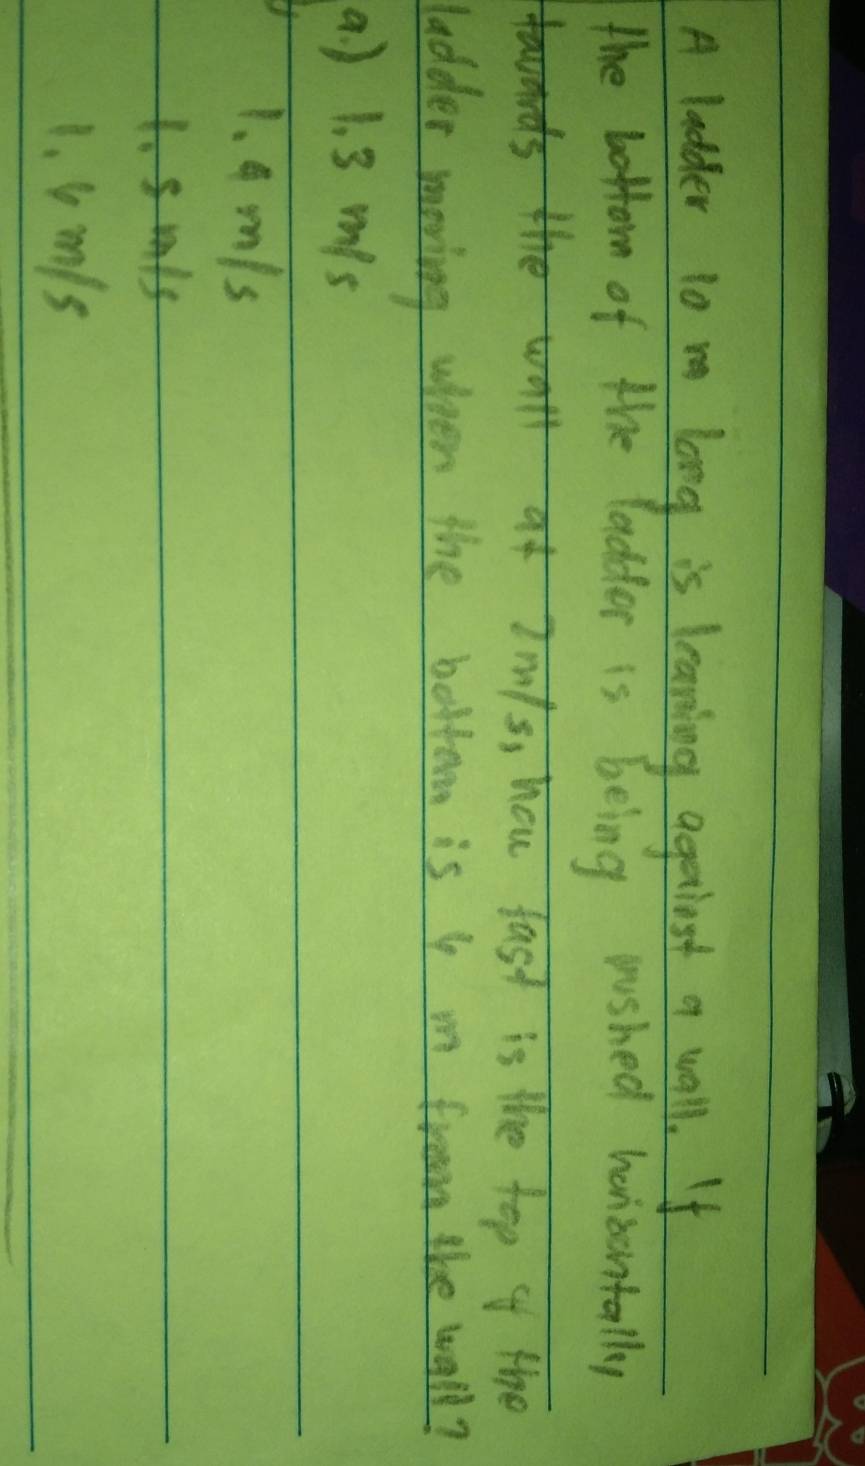 A ladder 10 m long is leaning against a wall. If
the bottom of the ladder is being pushed horizontally
towards the wall at 2m/s, how fast is the top of the
ladder moving when the bottom is 6 m from the wall?
a.) 1.3 m/s
1.4 m/s
1.5 m/s
1.6 m/s